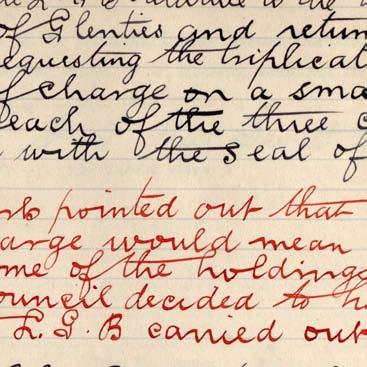 of Glenties and return
equesting the triplicat
f charge on a sma
each of the three c
with the seal of
rk pointed out that
arge would mean
me of the holdings
ouncil decided to h
L.G.B carried out